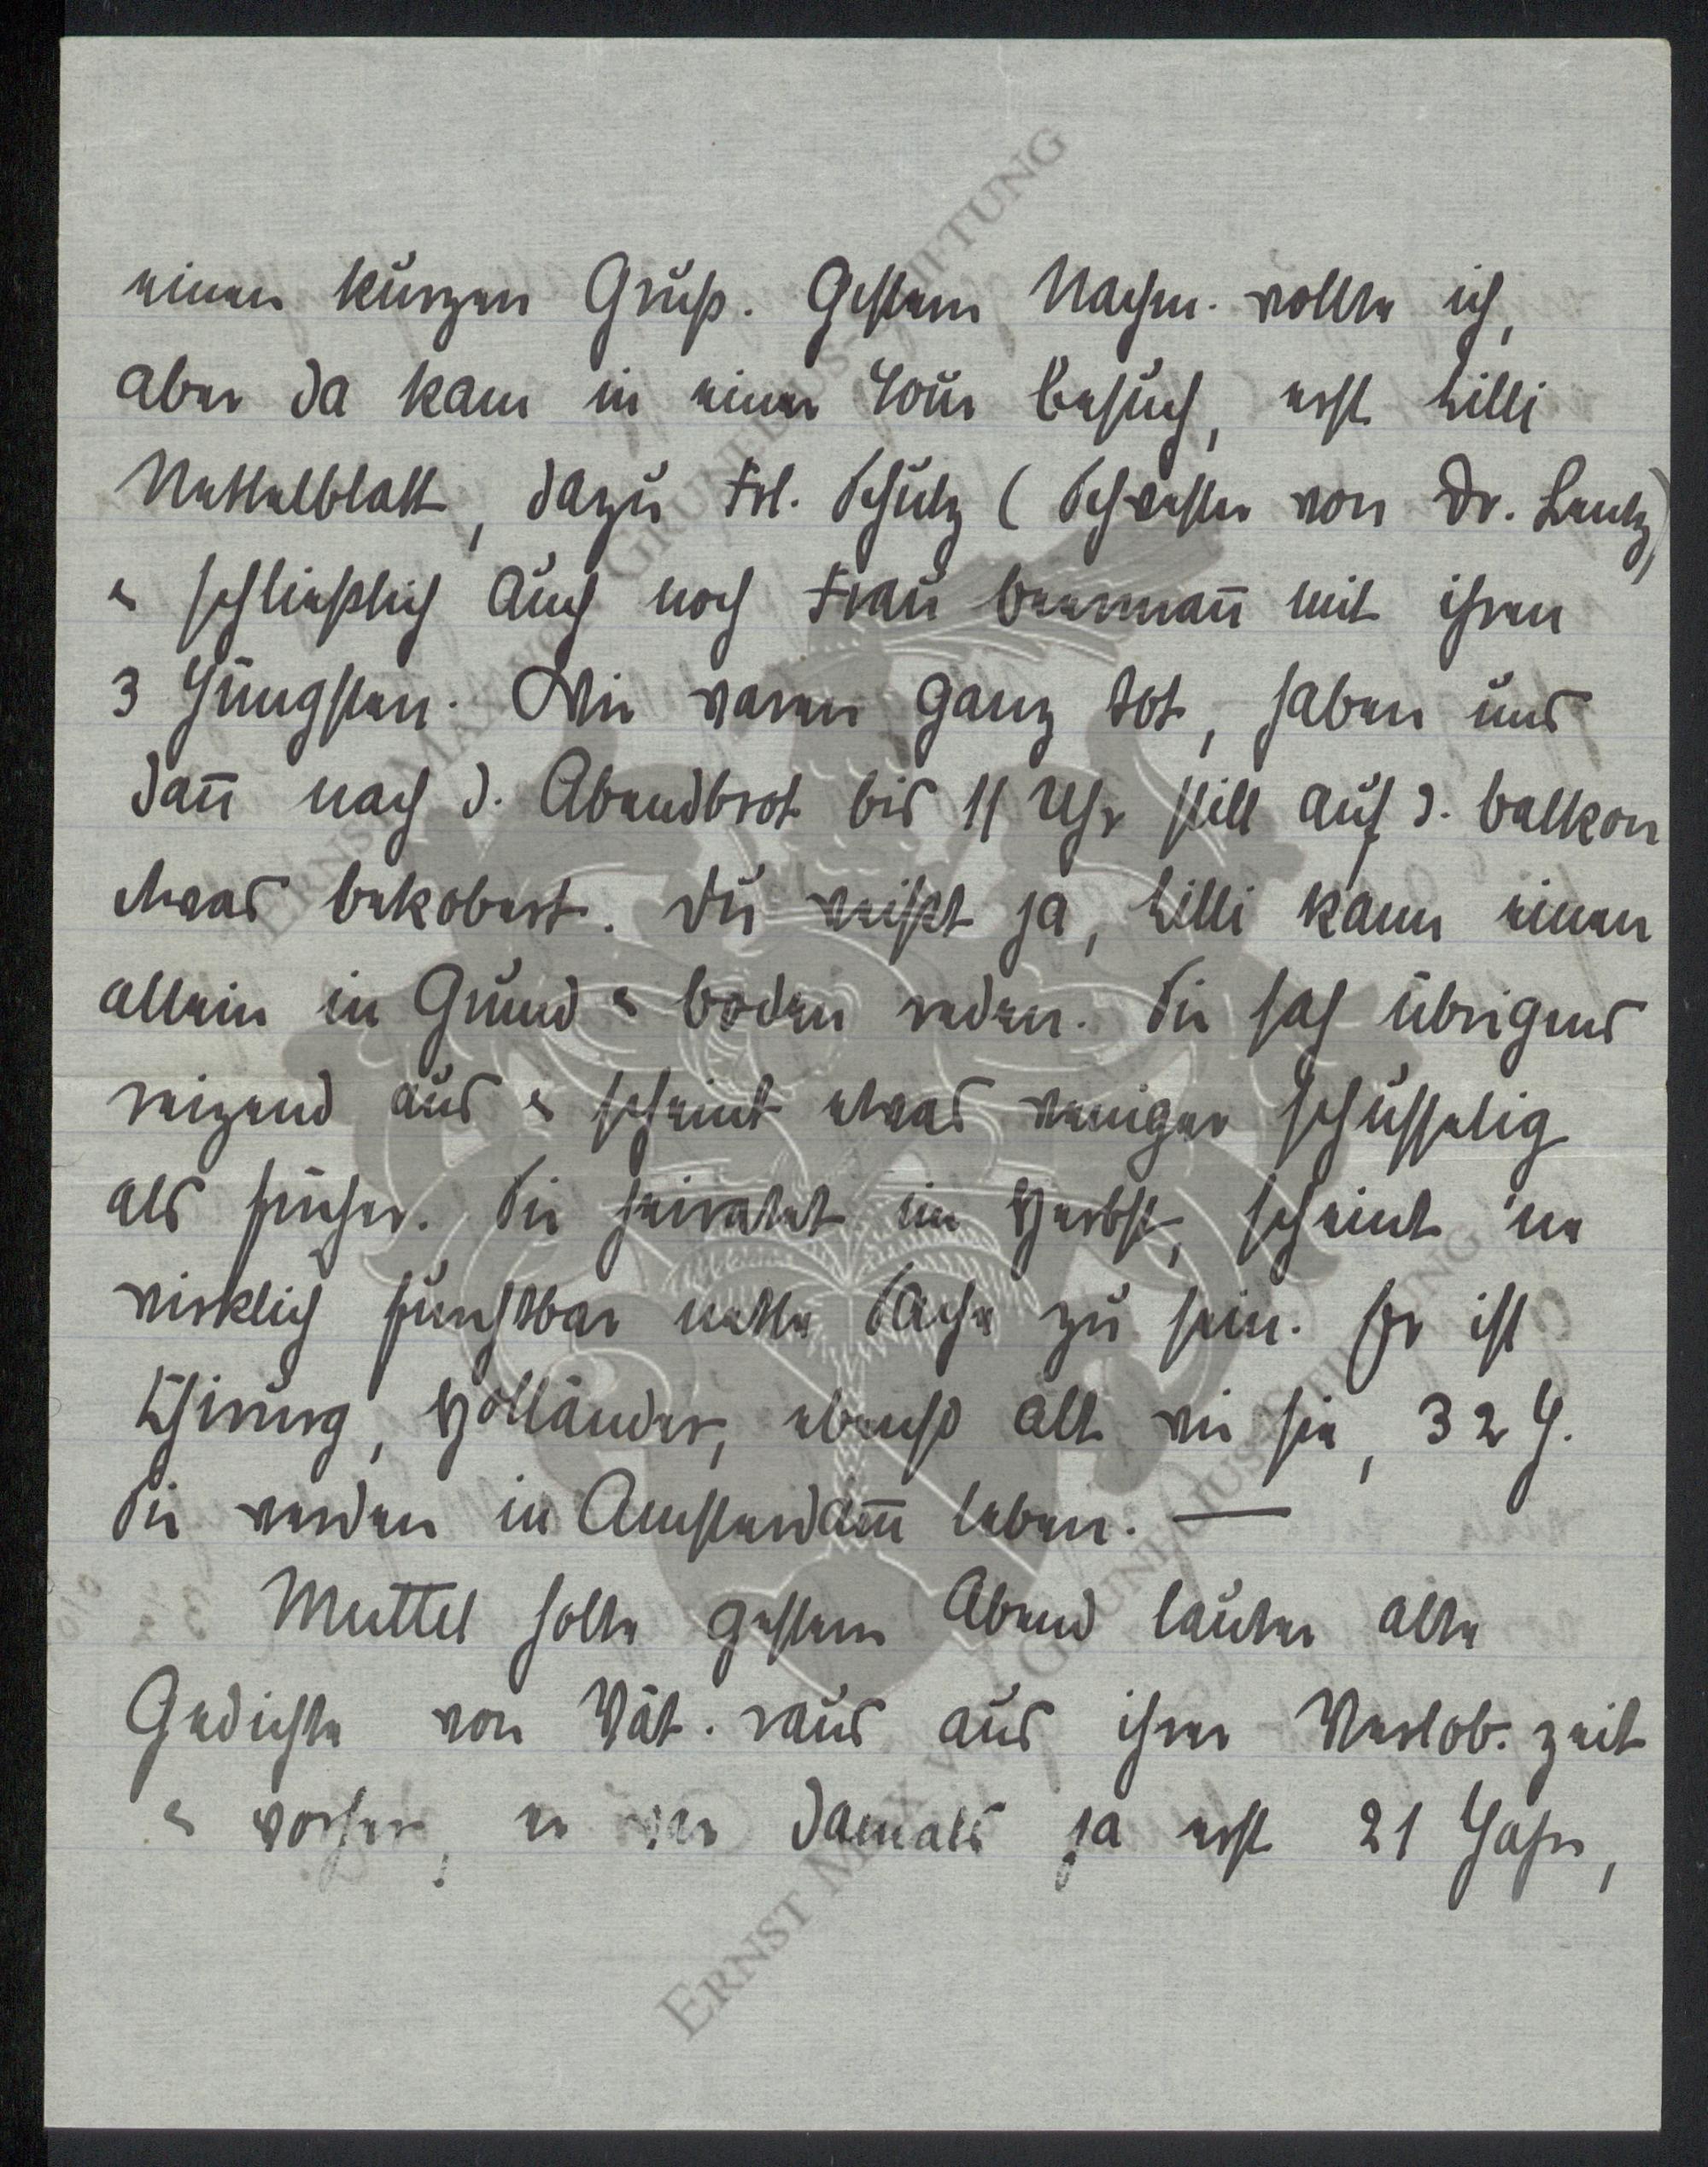 einen kurzen Gruß. Gestern Nachm. wollte ich,
aber da kam in einer Tour Besuch, erst Lilli
Nettelblatt, dazu Frl. Schulz (Schwester von Dr. Lentz)
& schließlich auch noch Frau Beermann̄ mit ihren
3 Jüngsten. Wir waren ganz tot, haben uns
dan̄ nach d. Abendbrot bis 11 Uhr still auf d. Balkon
etwas bekobert. Du weißt ja, Lilli kann einen
allein in Grund & Boden reden. Sie sah übrigens
reizend aus & scheint etwas weniger schusselig
als früher. Sie heiratet im Herbst, scheint 'ne
wirklich furchtbar nette Sache zu sein. Er ist
Chirurg, Holländer, ebenso alt wie sie, 32 J.
Sie werden in Amsterdam̄ leben. —
Muttel holte gestern Abend lauter alte
Gedichte von Vät. raus aus ihrer Verlob. zeit
& vorher, er war damals ja erst 21 Jahr,
ERNST MAX VON GRUNELIUS-STIFTUNG
ERNST MAX VON GRUNELIUS-STIFTUNG